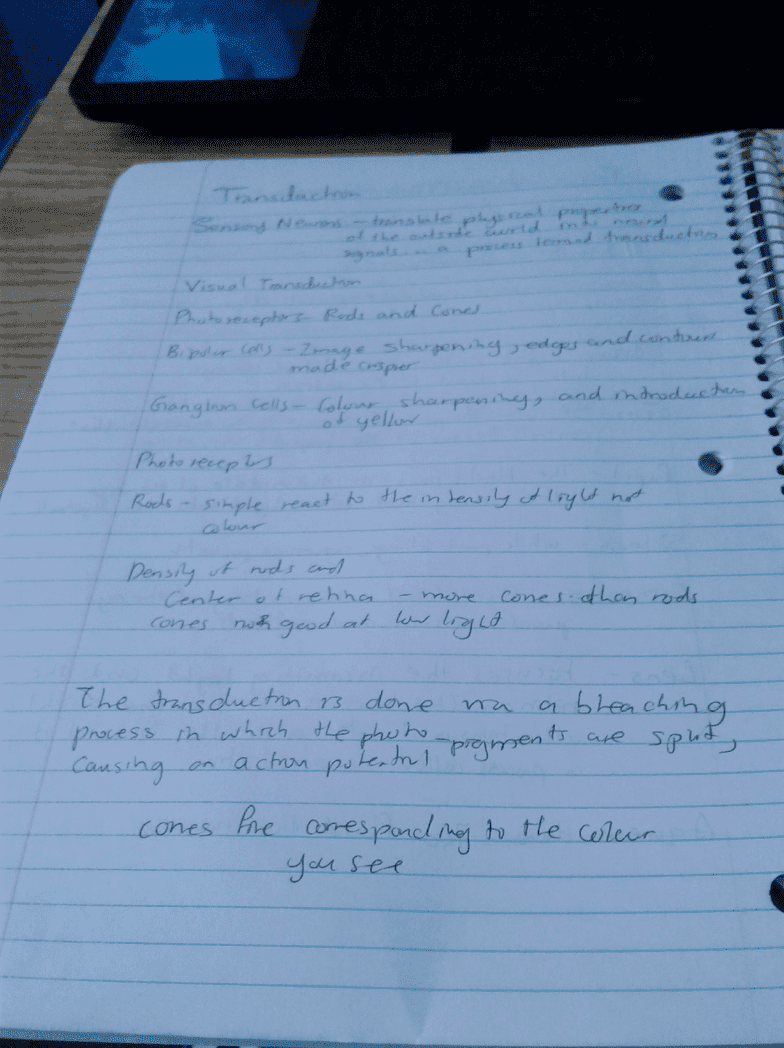 Transduction
Sensory Neurons - translate physical properties
of the outside world into neural
signals in a process termed transduction
Visual Transduction
Photoreceptors - Rods and Cones
Bipolar Cells - Image sharpening, edges and contours
made crisper
Ganglion Cells - Colour sharpening, and introduction
of yellow
Photo receptrs
Rods - simple react to the intensity of light not
colour
Density of rods and
Center of retina - more cones than rods
cones not good at low light
The transduction is done via a bleaching
process in which the photo-pigments are split,
causing an action potential
cones fire corresponding to the colour
you see